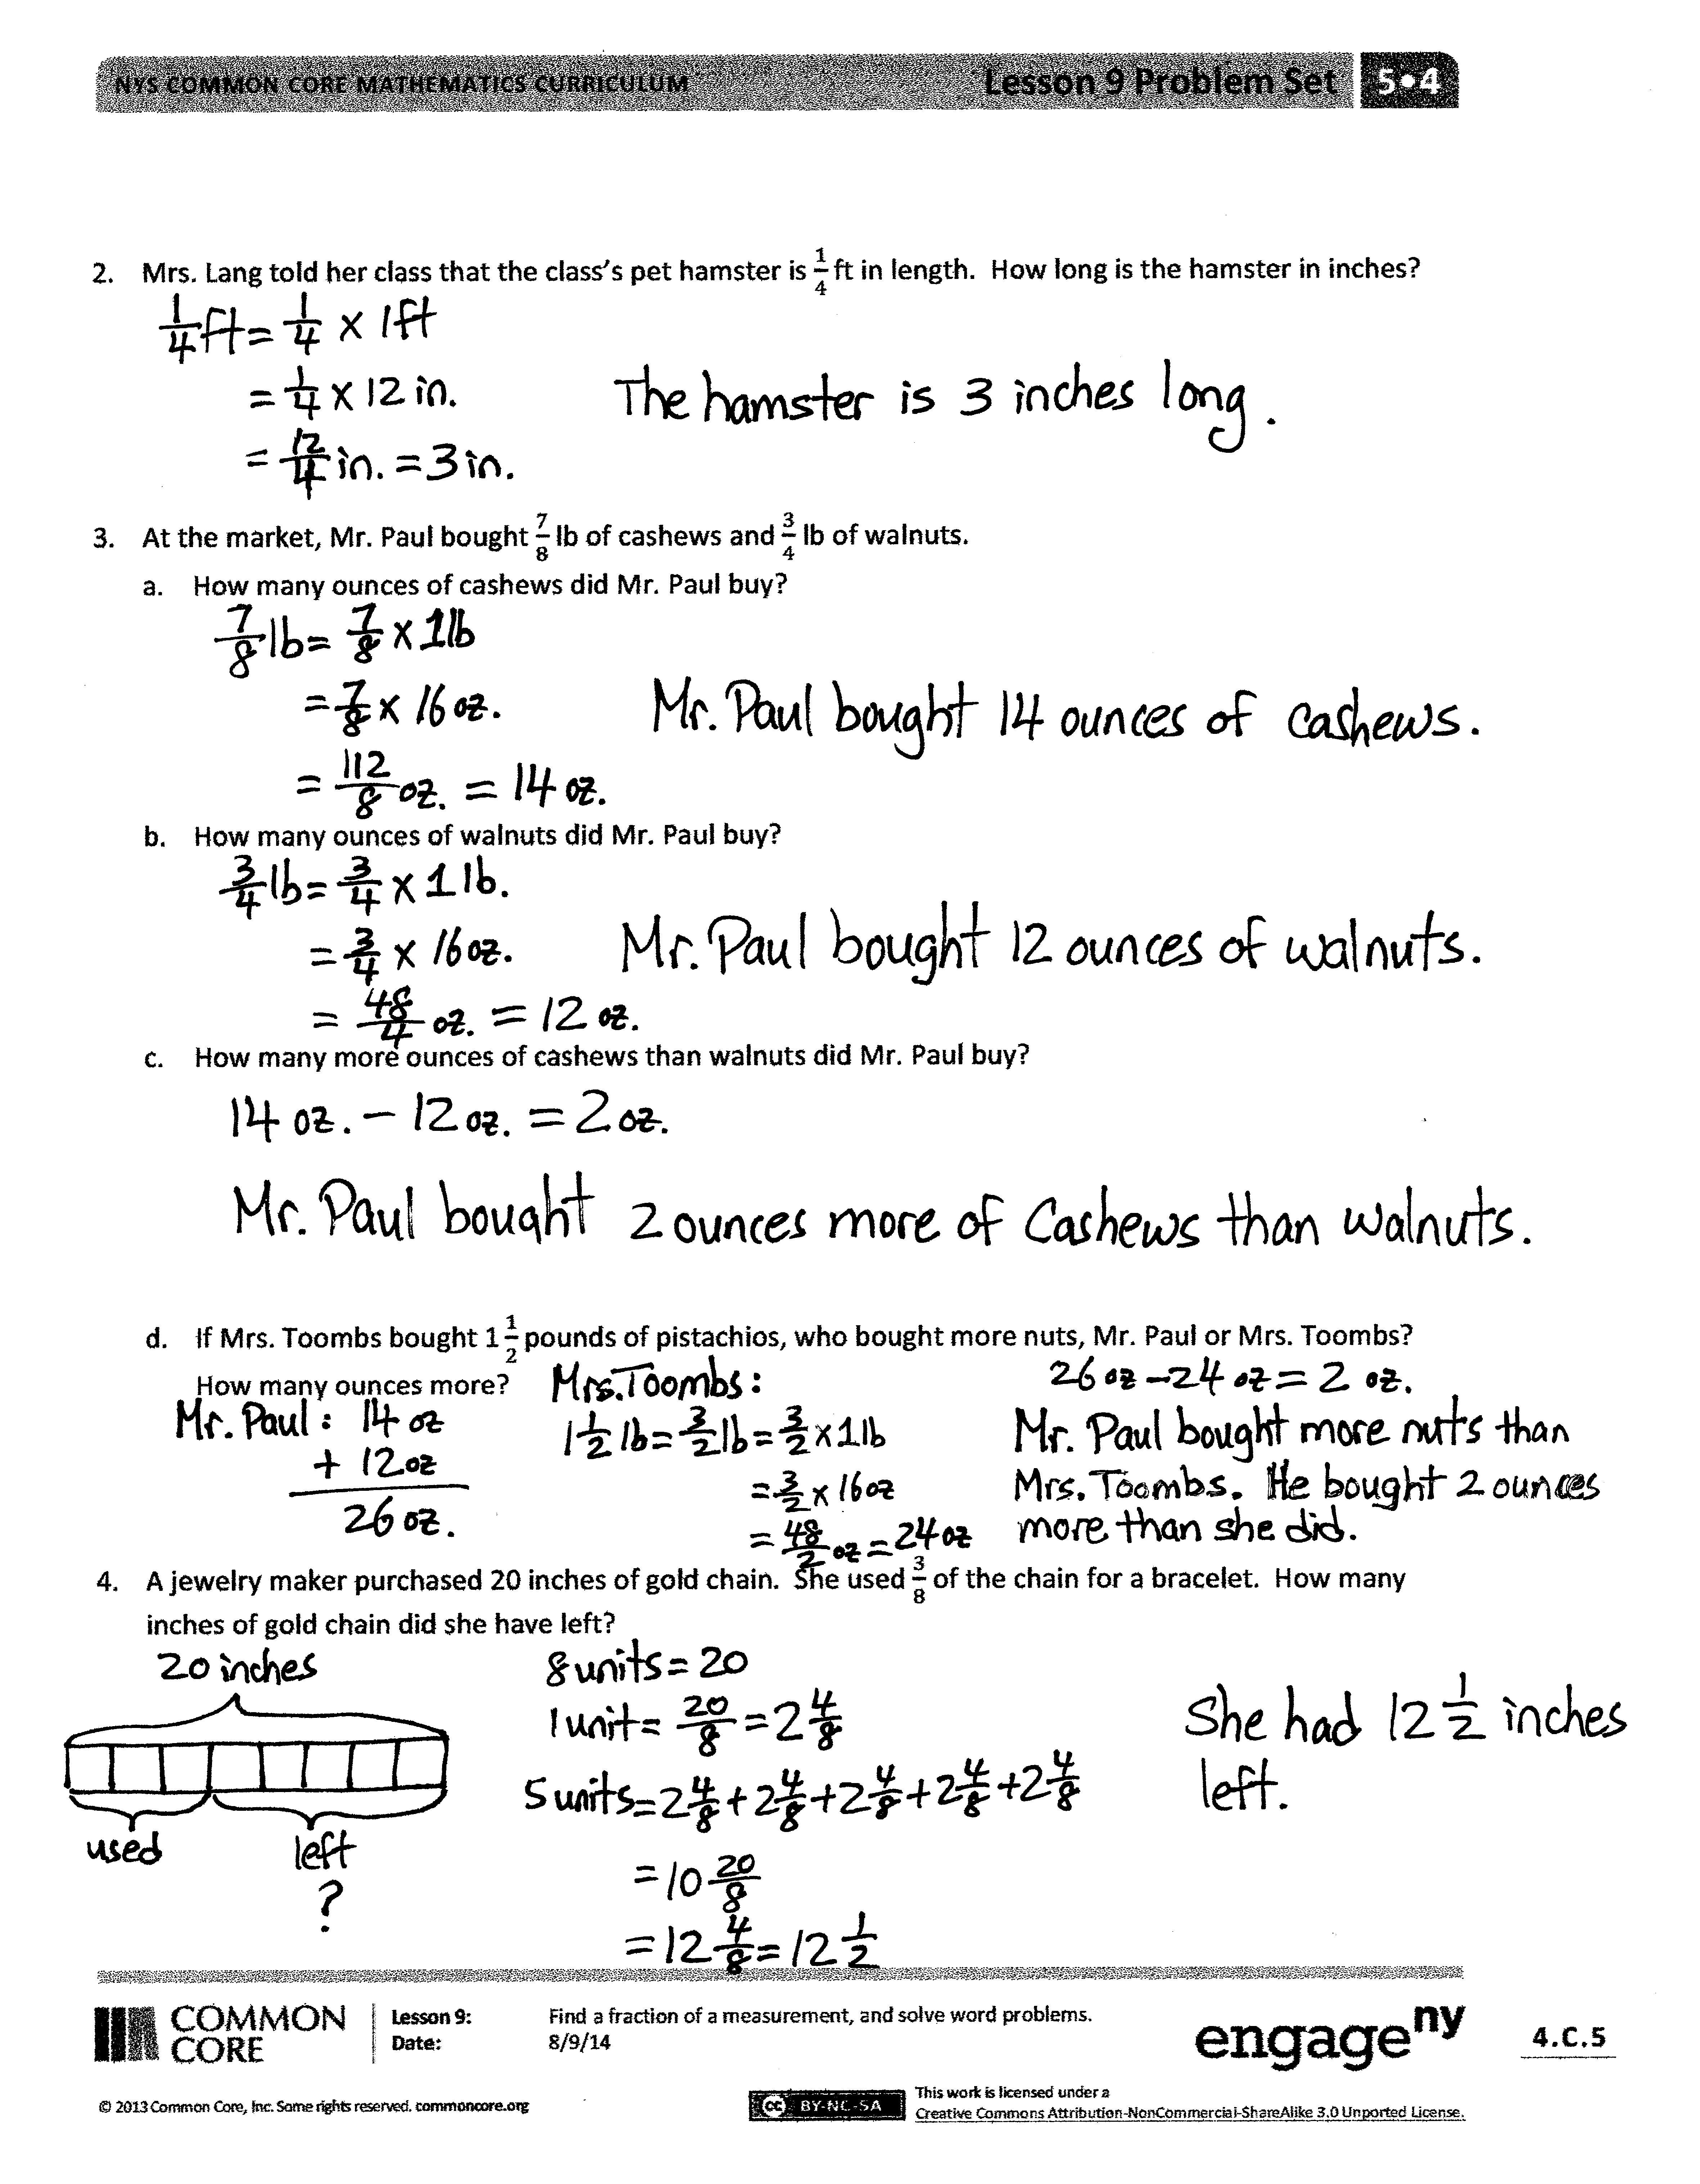 NYS COMMON CORE MATHEMATICS CURRICULUM Lesson 9 Problem Set 5•4
2. Mrs. Lang told her class that the class's pet hamster is 1/4 ft in length. How long is the hamster in inches?
1/4 ft = 1/4 × 1 ft
= 1/4 × 12 in.
The hamster is 3 inches long.
= 12/4 in. = 3 in.
3. At the market, Mr. Paul bought 7/8 lb of cashews and 3/4 lb of walnuts.
a. How many ounces of cashews did Mr. Paul buy?
7/8 lb = 7/8 × 1 lb
= 7/8 × 16 oz.
Mr. Paul bought 14 ounces of cashews.
= 112/8 oz. = 14 oz.
b. How many ounces of walnuts did Mr. Paul buy?
3/4 lb = 3/4 × 1 lb.
= 3/4 × 16 oz.
Mr. Paul bought 12 ounces of walnuts.
= 48/4 oz. = 12 oz.
c. How many more ounces of cashews than walnuts did Mr. Paul buy?
14 oz. − 12 oz. = 2 oz.
Mr. Paul bought 2 ounces more of Cashews than walnuts.
d. If Mrs. Toombs bought 1 1/2 pounds of pistachios, who bought more nuts, Mr. Paul or Mrs. Toombs?
How many ounces more?
Mr. Paul: 14 oz
+ 12 oz
26 oz.
Mrs. Toombs:
1 1/2 lb = 3/2 lb = 3/2 × 1 lb
= 3/2 × 16 oz
= 48/2 oz = 24 oz
26 oz − 24 oz = 2 oz.
Mr. Paul bought more nuts than
Mrs. Toombs. He bought 2 ounces
more than she did.
4. A jewelry maker purchased 20 inches of gold chain. She used 3/8 of the chain for a bracelet. How many
inches of gold chain did she have left?
20 inches
used
left
?
8 units = 20
1 unit = 20/8 = 2 4/8
5 units = 2 4/8 + 2 4/8 + 2 4/8 + 2 4/8 + 2 4/8
= 10 20/8
= 12 4/8 = 12 1/2
She had 12 1/2 inches
left.
COMMON
CORE
Lesson 9: Find a fraction of a measurement, and solve word problems.
Date: 8/9/14
engage ny
4.C.5
© 2013 Common Core, Inc. Some rights reserved. commoncore.org
cc BY-NC-SA
This work is licensed under a
Creative Commons Attribution-NonCommercial-ShareAlike 3.0 Unported License.